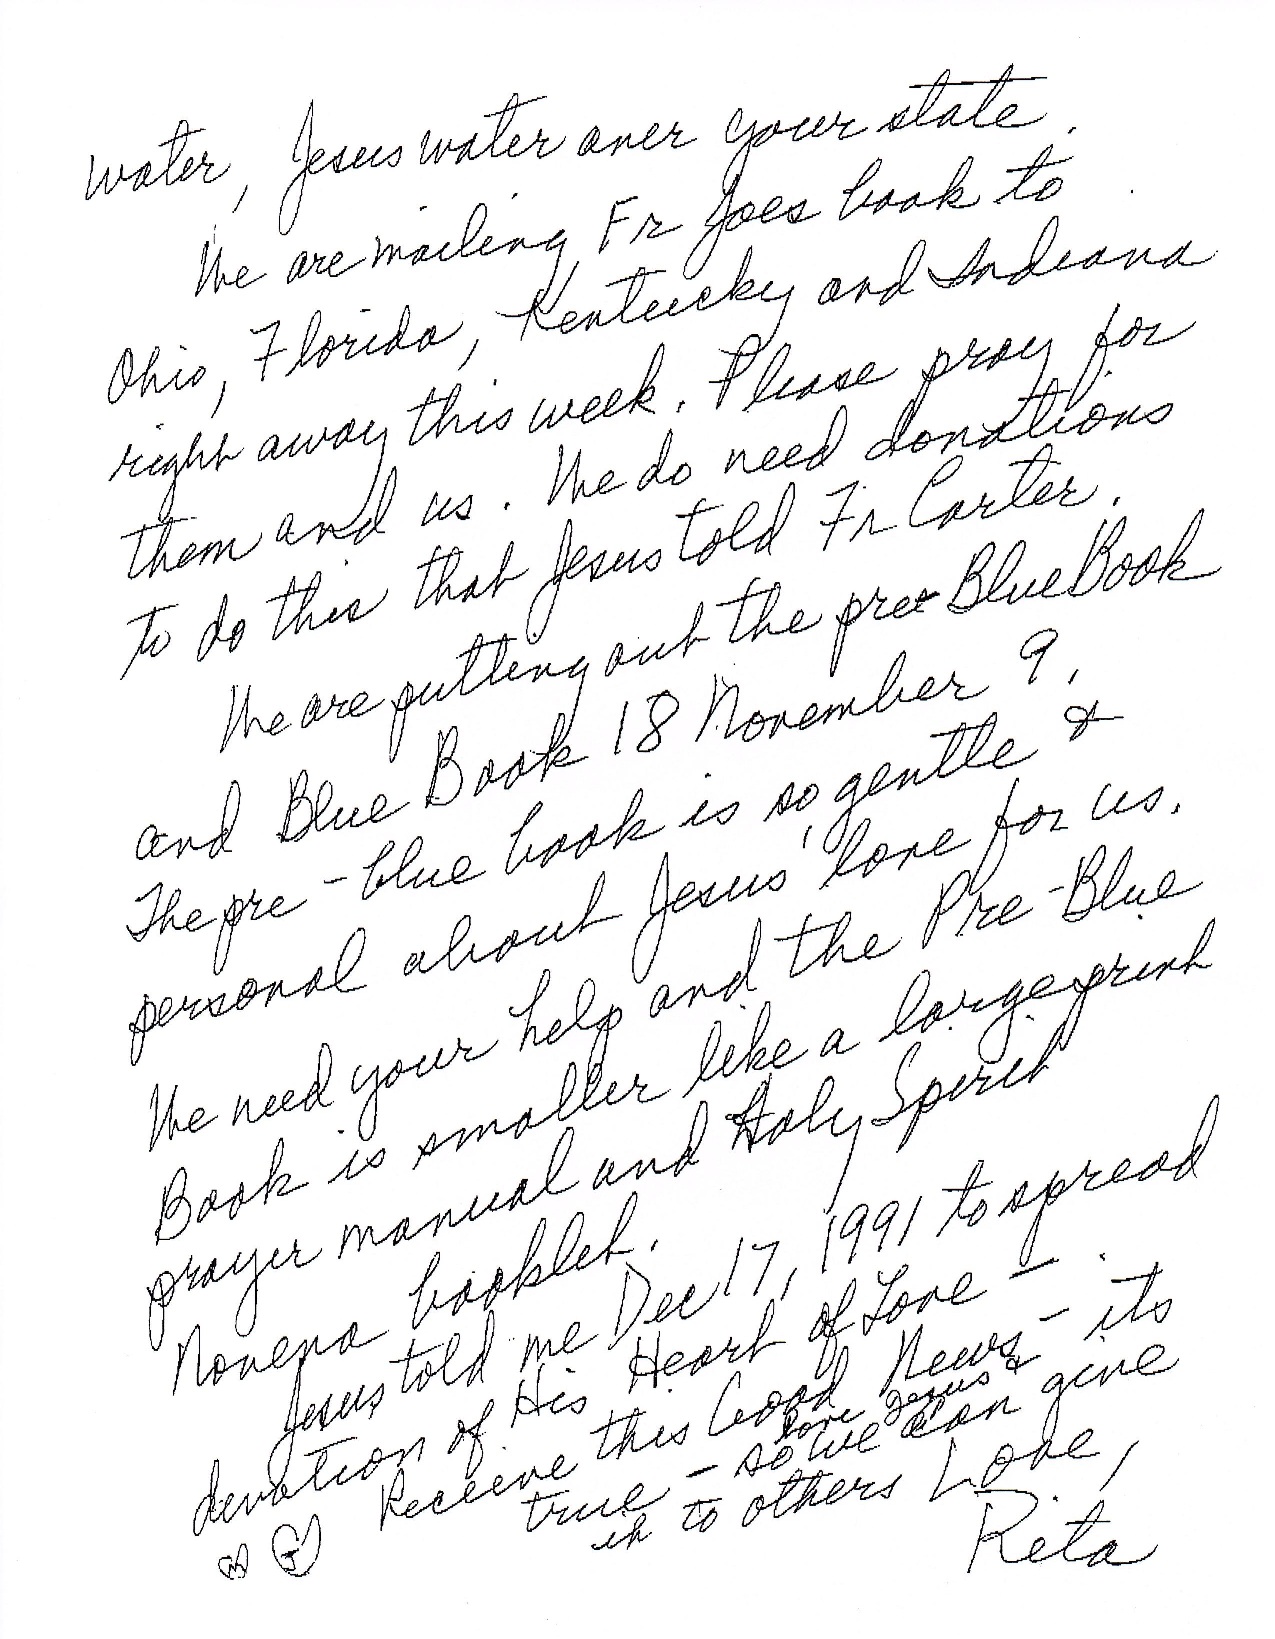 water, Jesus water over your state.
We are mailing Fr Joes book to
Ohio, Florida, Kentucky and Indiana
right away this week. Please pray for
them and us. We do need donations
to do this that Jesus told Fr Carter.
We are putting out the pre BlueBook
and Blue Book 18 November 9.
The pre-blue book is so gentle &
personal about Jesus' love for us.
We need your help and the Pre-Blue
Book is smaller like a large print
prayer manual and Holy Spirit
Novena booklet.
Jesus told me Dec 17, 1991 to spread
devotion of His Heart of Love –
Receive this Good News – its
love Jesus &
true – so we can give
it to others Love,
Rita